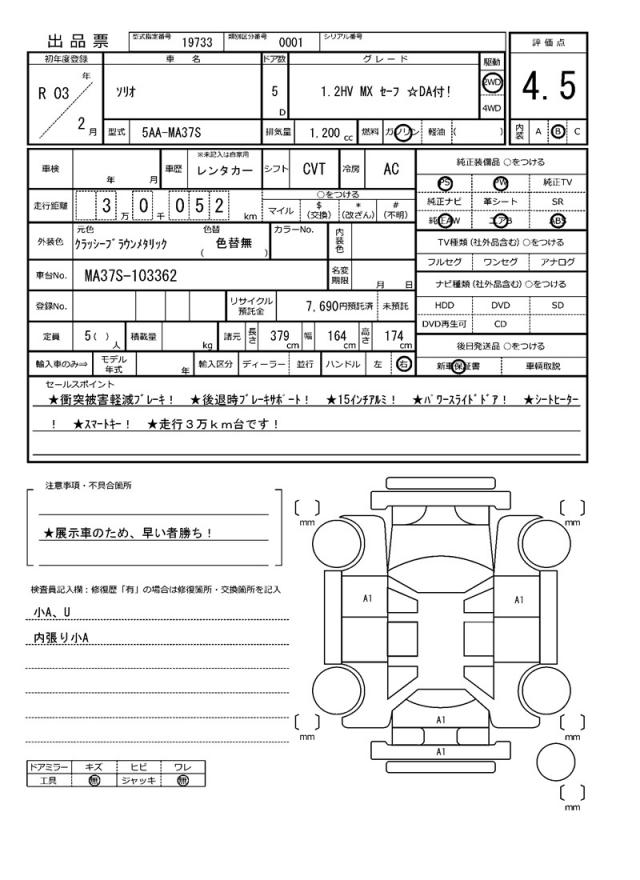 出品票 型式指定番号 19733 類別区分番号 0001 シリアル番号
評価点
初年度登録 車名 ドア数 グレード 駆動
R 03 年 2 月
ソリオ 5 D 1.2HV MX セーフ ☆DA付! 2WD 4WD
4.5
型式 5AA-MA37S 排気量 1.200 cc 燃料 ガソリン 軽油 ( )
内装 A B C
車検 年 月 車歴 ※未記入は自家用 レンタカー シフト CVT 冷房 AC
純正装備品 ○をつける
PS PW 純正TV
純正ナビ 革シート SR
純正AW エアB ABS
走行距離 3 万 0 千 0 5 2 km
○をつける
マイル $(交換) *(改ざん) #(不明)
外装色 元色 クラッシーブラウンメタリック 色替 ( 色替無 ) カラーNo. 内装色
TV種類(社外品含む)○をつける
フルセグ ワンセグ アナログ
車台No. MA37S-103362 名変期限 月 日
ナビ種類(社外品含む)○をつける
HDD DVD SD
DVD再生可 CD
登録No. リサイクル預託金 7,690円預託済 未預託
定員 5( )人 積載量 kg 諸元 長さ 379 cm 幅 164 cm 高さ 174 cm
後日発送品 ○をつける
新車保証書 車輌取説
輸入車のみ⇒ モデル年式 年 輸入区分 ディーラー 並行 ハンドル 左 右
セールスポイント
★衝突被害軽減ブレーキ! ★後退時ブレーキサポート! ★15インチアルミ! ★パワースライドドア! ★シートヒーター
! ★スマートキー! ★走行3万km台です!
注意事項・不具合箇所
★展示車のため、早い者勝ち!
検査員記入欄:修復歴「有」の場合は修復箇所・交換箇所を記入
小A、U
内張り小A
ドアミラー キズ ヒビ ワレ
工具 無 ジャッキ 無
[ ] mm
[ ] mm
A1
A1
[ ] mm
A1
[ ] mm
A1
[ ] mm